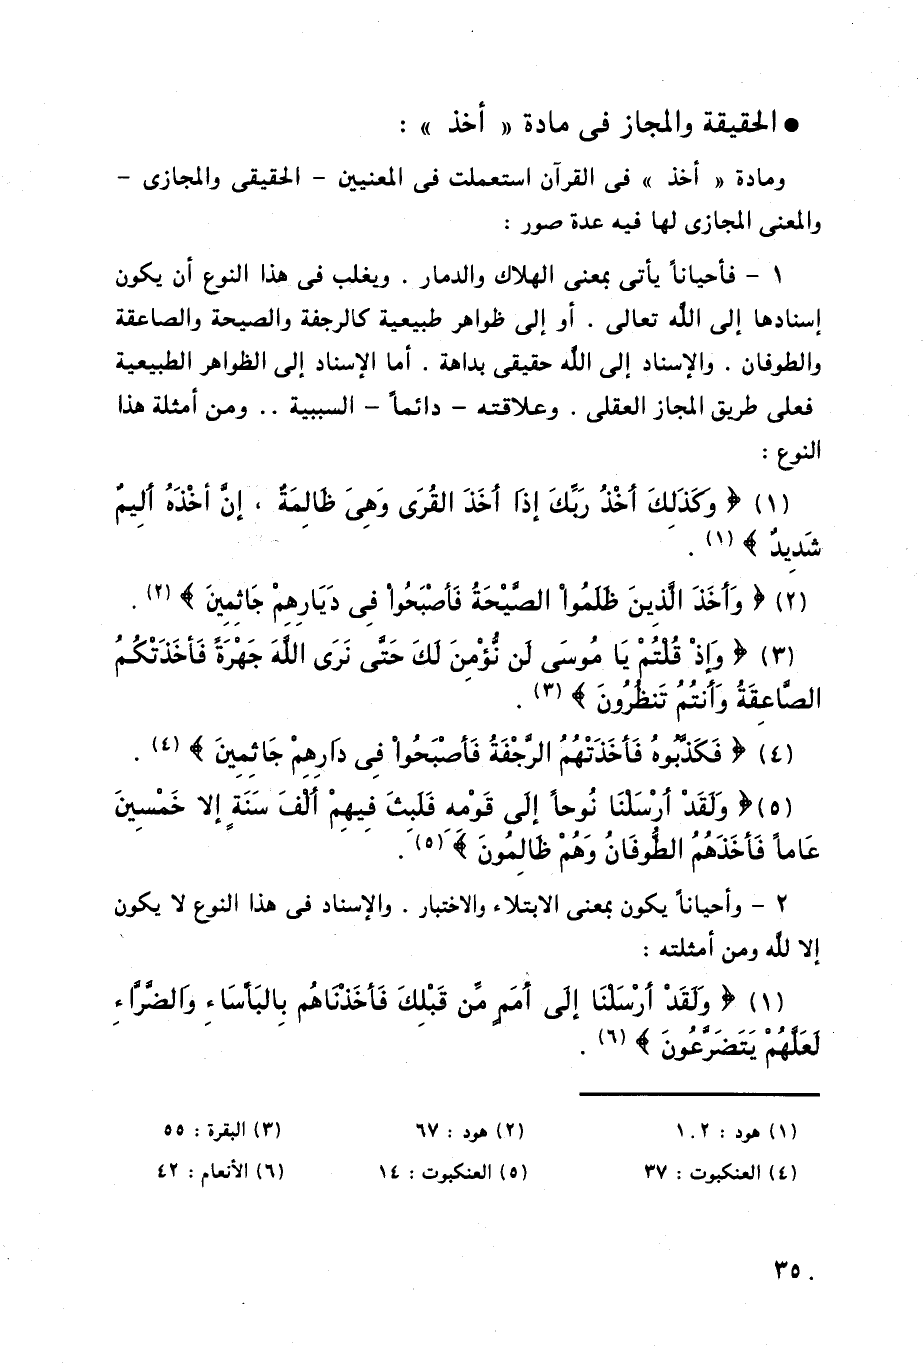 ● الحقيقة والمجاز فى مادة « أخذ » :
ومادة « أخذ » فى القرآن استعملت فى المعنيين – الحقيقى والمجازى –
والمعنى المجازى لها فيه عدة صور :
١ – فأحياناً يأتى بمعنى الهلاك والدمار . ويغلب فى هذا النوع أن يكون
إسنادها إلى الله تعالى . أو إلى ظواهر طبيعية كالرجفة والصيحة والصاعقة
والطوفان . والإسناد إلى الله حقيقى بداهة . أما الإسناد إلى الظواهر الطبيعية
فعلى طريق المجاز العقلى . وعلاقته – دائماً – السببية .. ومن أمثلة هذا
النوع :
(١) ﴿ وَكَذَلِكَ أَخْذُ رَبِّكَ إِذَا أَخَذَ القُرَى وَهِىَ ظَالِمَةٌ ، إِنَّ أَخْذَهُ أَلِيمٌ
شَدِيدٌ ﴾ (١) .
(٢) ﴿ وَأَخَذَ الَّذِينَ ظَلَمُواْ الصَّيْحَةُ فَأَصْبَحُواْ فِى دِيَارِهِمْ جَاثِمِينَ ﴾ (٢) .
(٣) ﴿ وَإِذْ قُلْتُمْ يَا مُوسَى لَن نُّؤْمِنَ لَكَ حَتَّى نَرَى اللَّهَ جَهْرَةً فَأَخَذَتْكُمُ
الصَّاعِقَةُ وَأَنتُمْ تَنظُرُونَ ﴾ (٣) .
(٤) ﴿ فَكَذَّبُوهُ فَأَخَذَتْهُمُ الرَّجْفَةُ فَأَصْبَحُواْ فِى دَارِهِمْ جَاثِمِينَ ﴾ (٤) .
(٥) ﴿ وَلَقَدْ أَرْسَلْنَا نُوحاً إِلَى قَوْمِهِ فَلَبِثَ فِيهِمْ أَلْفَ سَنَةٍ إِلا خَمْسِينَ
عَاماً فَأَخَذَهُمُ الطُّوفَانُ وَهُمْ ظَالِمُونَ ﴾ (٥) .
٢ – وأحياناً يكون بمعنى الابتلاء والاختبار . والإسناد فى هذا النوع لا يكون
إلا لله ومن أمثلته :
(١) ﴿ وَلَقَدْ أَرْسَلْنَا إِلَى أُمَمٍ مِّن قَبْلِكَ فَأَخَذْنَاهُم بِالبَأْسَاءِ وَالضَّرَّاءِ
لَعَلَّهُمْ يَتَضَرَّعُونَ ﴾ (٦) .
(١) هود : ١٠٢ (٢) هود : ٦٧ (٣) البقرة : ٥٥
(٤) العنكبوت : ٣٧ (٥) العنكبوت : ١٤ (٦) الأنعام : ٤٢
٣٥٠